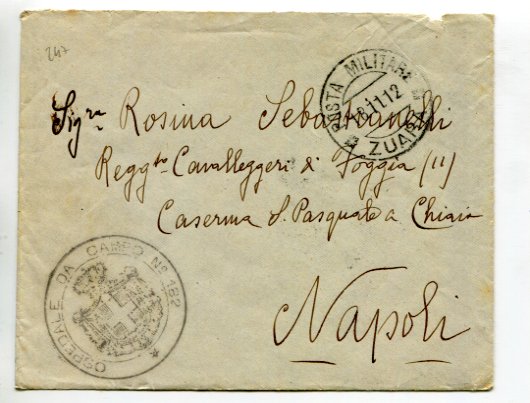 247
POSTA MILITARE
8.11.12
ZUARA
Sig.ra Rosina Sebastianelli
Regg.to Cavalleggeri di Foggia (11)
Caserma S. Pasquale a Chiaia
Napoli
OSPEDALE DA CAMPO No 182